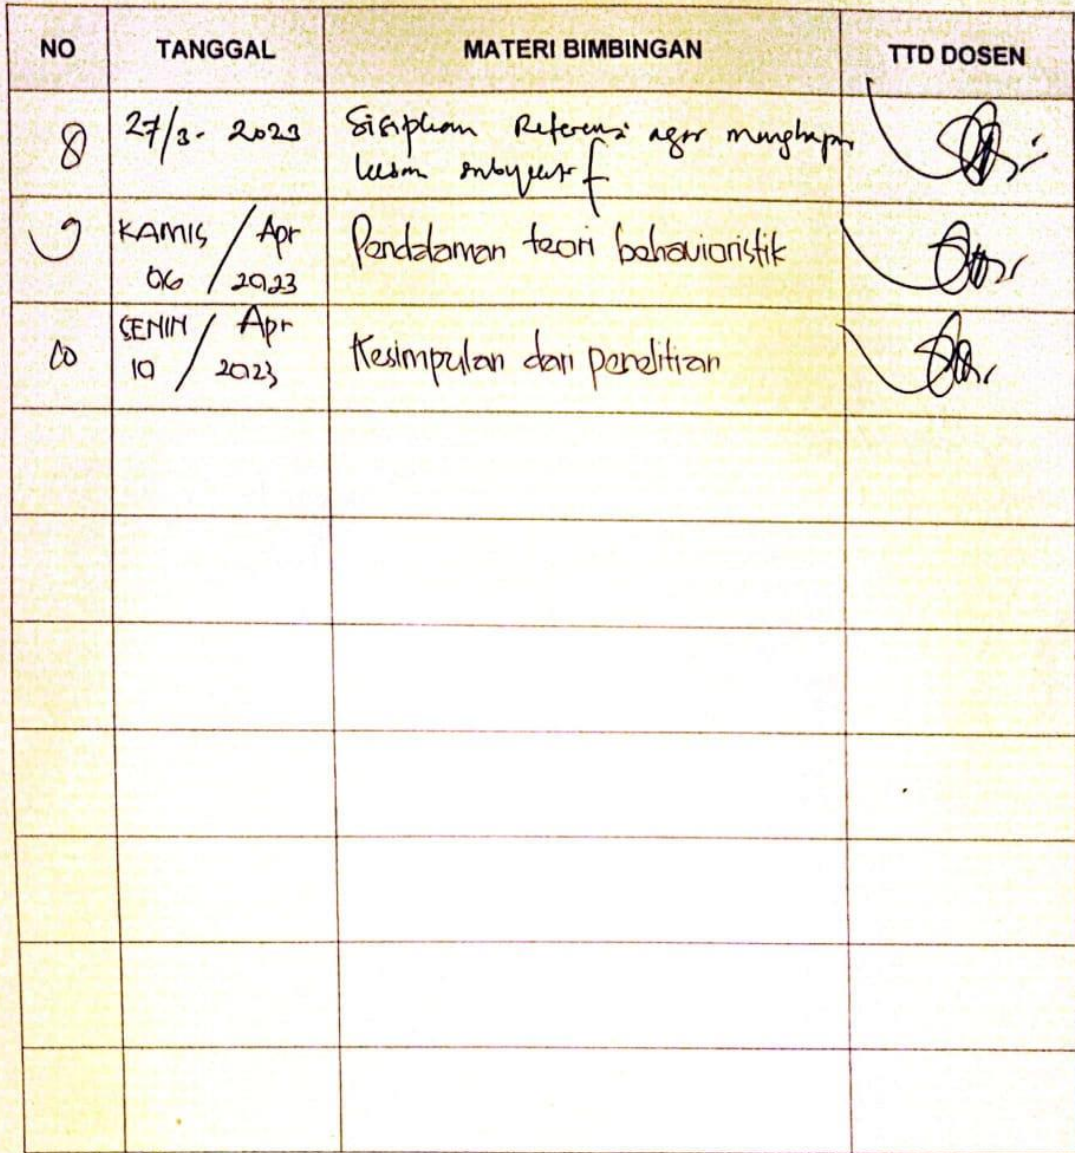 NO TANGGAL MATERI BIMBINGAN TTD DOSEN
8 27/3- 2023 Sisipkan Referensi agar menghapus
kesan subyektif
9 KAMIS / Apr Pendalaman teori behavioristik
06 / 2023
10 SENIN / Apr Kesimpulan dari penelitian
10 / 2023